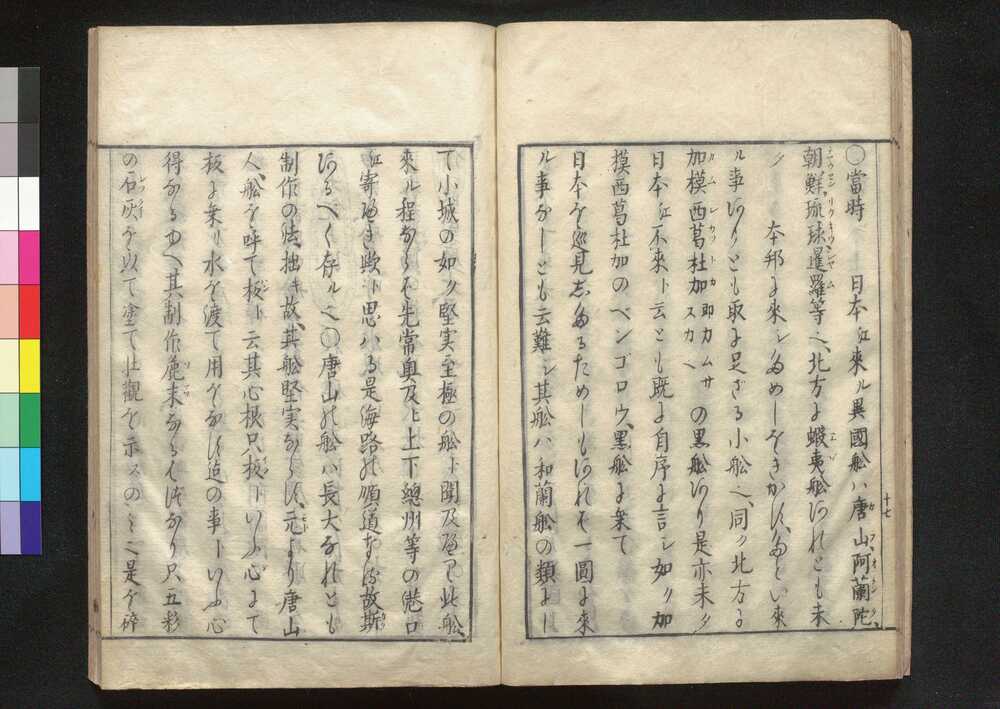 ○當時　日本江來ル異國舩ハ唐山阿蘭陀
朝鮮琉球暹羅等ヘ、北方ニ蝦夷舩アレとも未
タ　本邦ニ來シためしをきかす、たとい來
ル事ありとも取ニ足ざる小舩ヘ、同ク北方に
加模西葛杜加即カムサスカヘの黒舩あり是亦未タ
日本江不來ト云とも既ニ自序ニ言シ如ク加
摸西葛杜加のベンゴロウ、黒舩ニ乗て
日本を巡見したるためしもあれそ一圓ニ來
ル事なしとも云難シ其舩ハ和蘭舩の類にし
て小城の如ク堅実至極の舩ト聞及ヘり此舩
來ル程ならそ先常奥及ヒ上下總州等の港口
江寄へき歟ト思ハる是海路の順道なる故斯
あるへく存ルヘ○唐山の舩ハ長大なれとも
制作の法、拙キ故、其舩堅実ならす、元より唐山
人、舩を呼て板ト云其心根只板トいふ心にて
板ニ乗リ水を渡て用をなす迠の事トいふ心
得なるゆへ其制作麁末なるそはなり只五彩
の石灰を以て塗て壮觀を示スのミ是を碎
十七